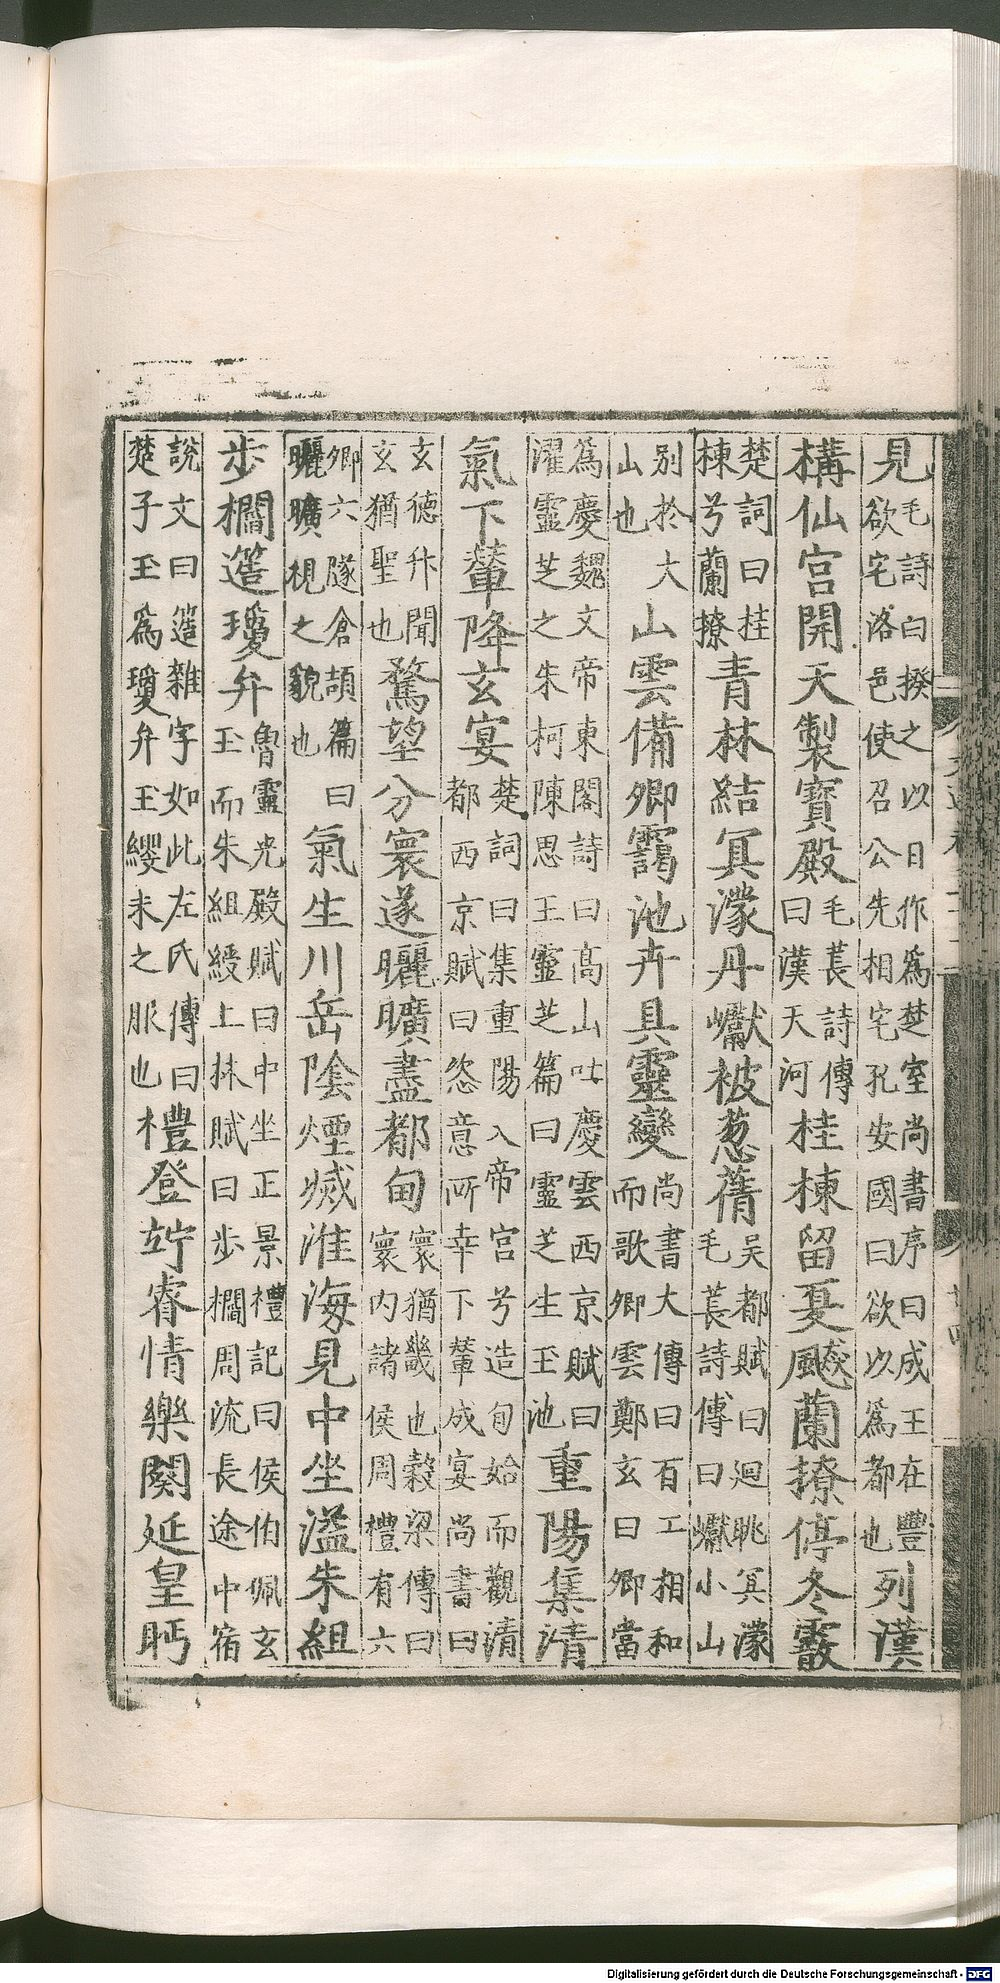 見毛詩曰揆之以日作爲楚室尚書序曰成王在豐欲宅洛邑使召公先相宅孔安國曰欲以爲都也列漢
構仙宮開天製寶殿毛萇詩傳曰漢天河桂棟留夏飈蘭橑停冬霰
楚詞曰桂棟兮蘭橑青林結冥濛丹巘被葱蒨吳都賦曰迴眺冥濛毛萇詩傳曰巘小山
別於大山也山雲備卿靄池卉具靈變尚書大傳曰百工相和而歌卿雲鄭玄曰卿當
爲慶魏文帝東閣詩曰高山吐慶雲西京賦曰濯靈芝之朱柯陳思王靈芝篇曰靈芝生玉池重陽集清
氣下輦降玄宴楚詞曰集重陽入帝宮兮造旬始而觀清都西京賦曰恣意所幸下輦成宴尚書曰
玄德升聞玄猶聖也騖望分寰遂曬曠盡都甸寰猶畿也穀梁傳曰寰內諸侯周禮有六
卿六隧倉頡篇曰曬曠視之貌也氣生川岳陰煙滅淮海見中坐溢朱組
步櫩簉瓊弁魯靈光殿賦曰中坐正景禮記曰侯伯佩玄玉而朱組綬上林賦曰步櫩周流長途中宿
説文曰簉雜字如此左氏傳曰楚子玉爲瓊弁玉纓未之服也禮登竚睿情樂闋延皇眄
Digitalisierung gefördert durch die Deutsche Forschungsgemeinschaft - DFG